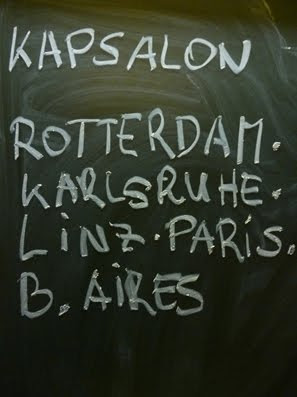 KAPSALON
ROTTERDAM.
KARLSRUHE.
LiNZ.PARiS.
B.AiRES